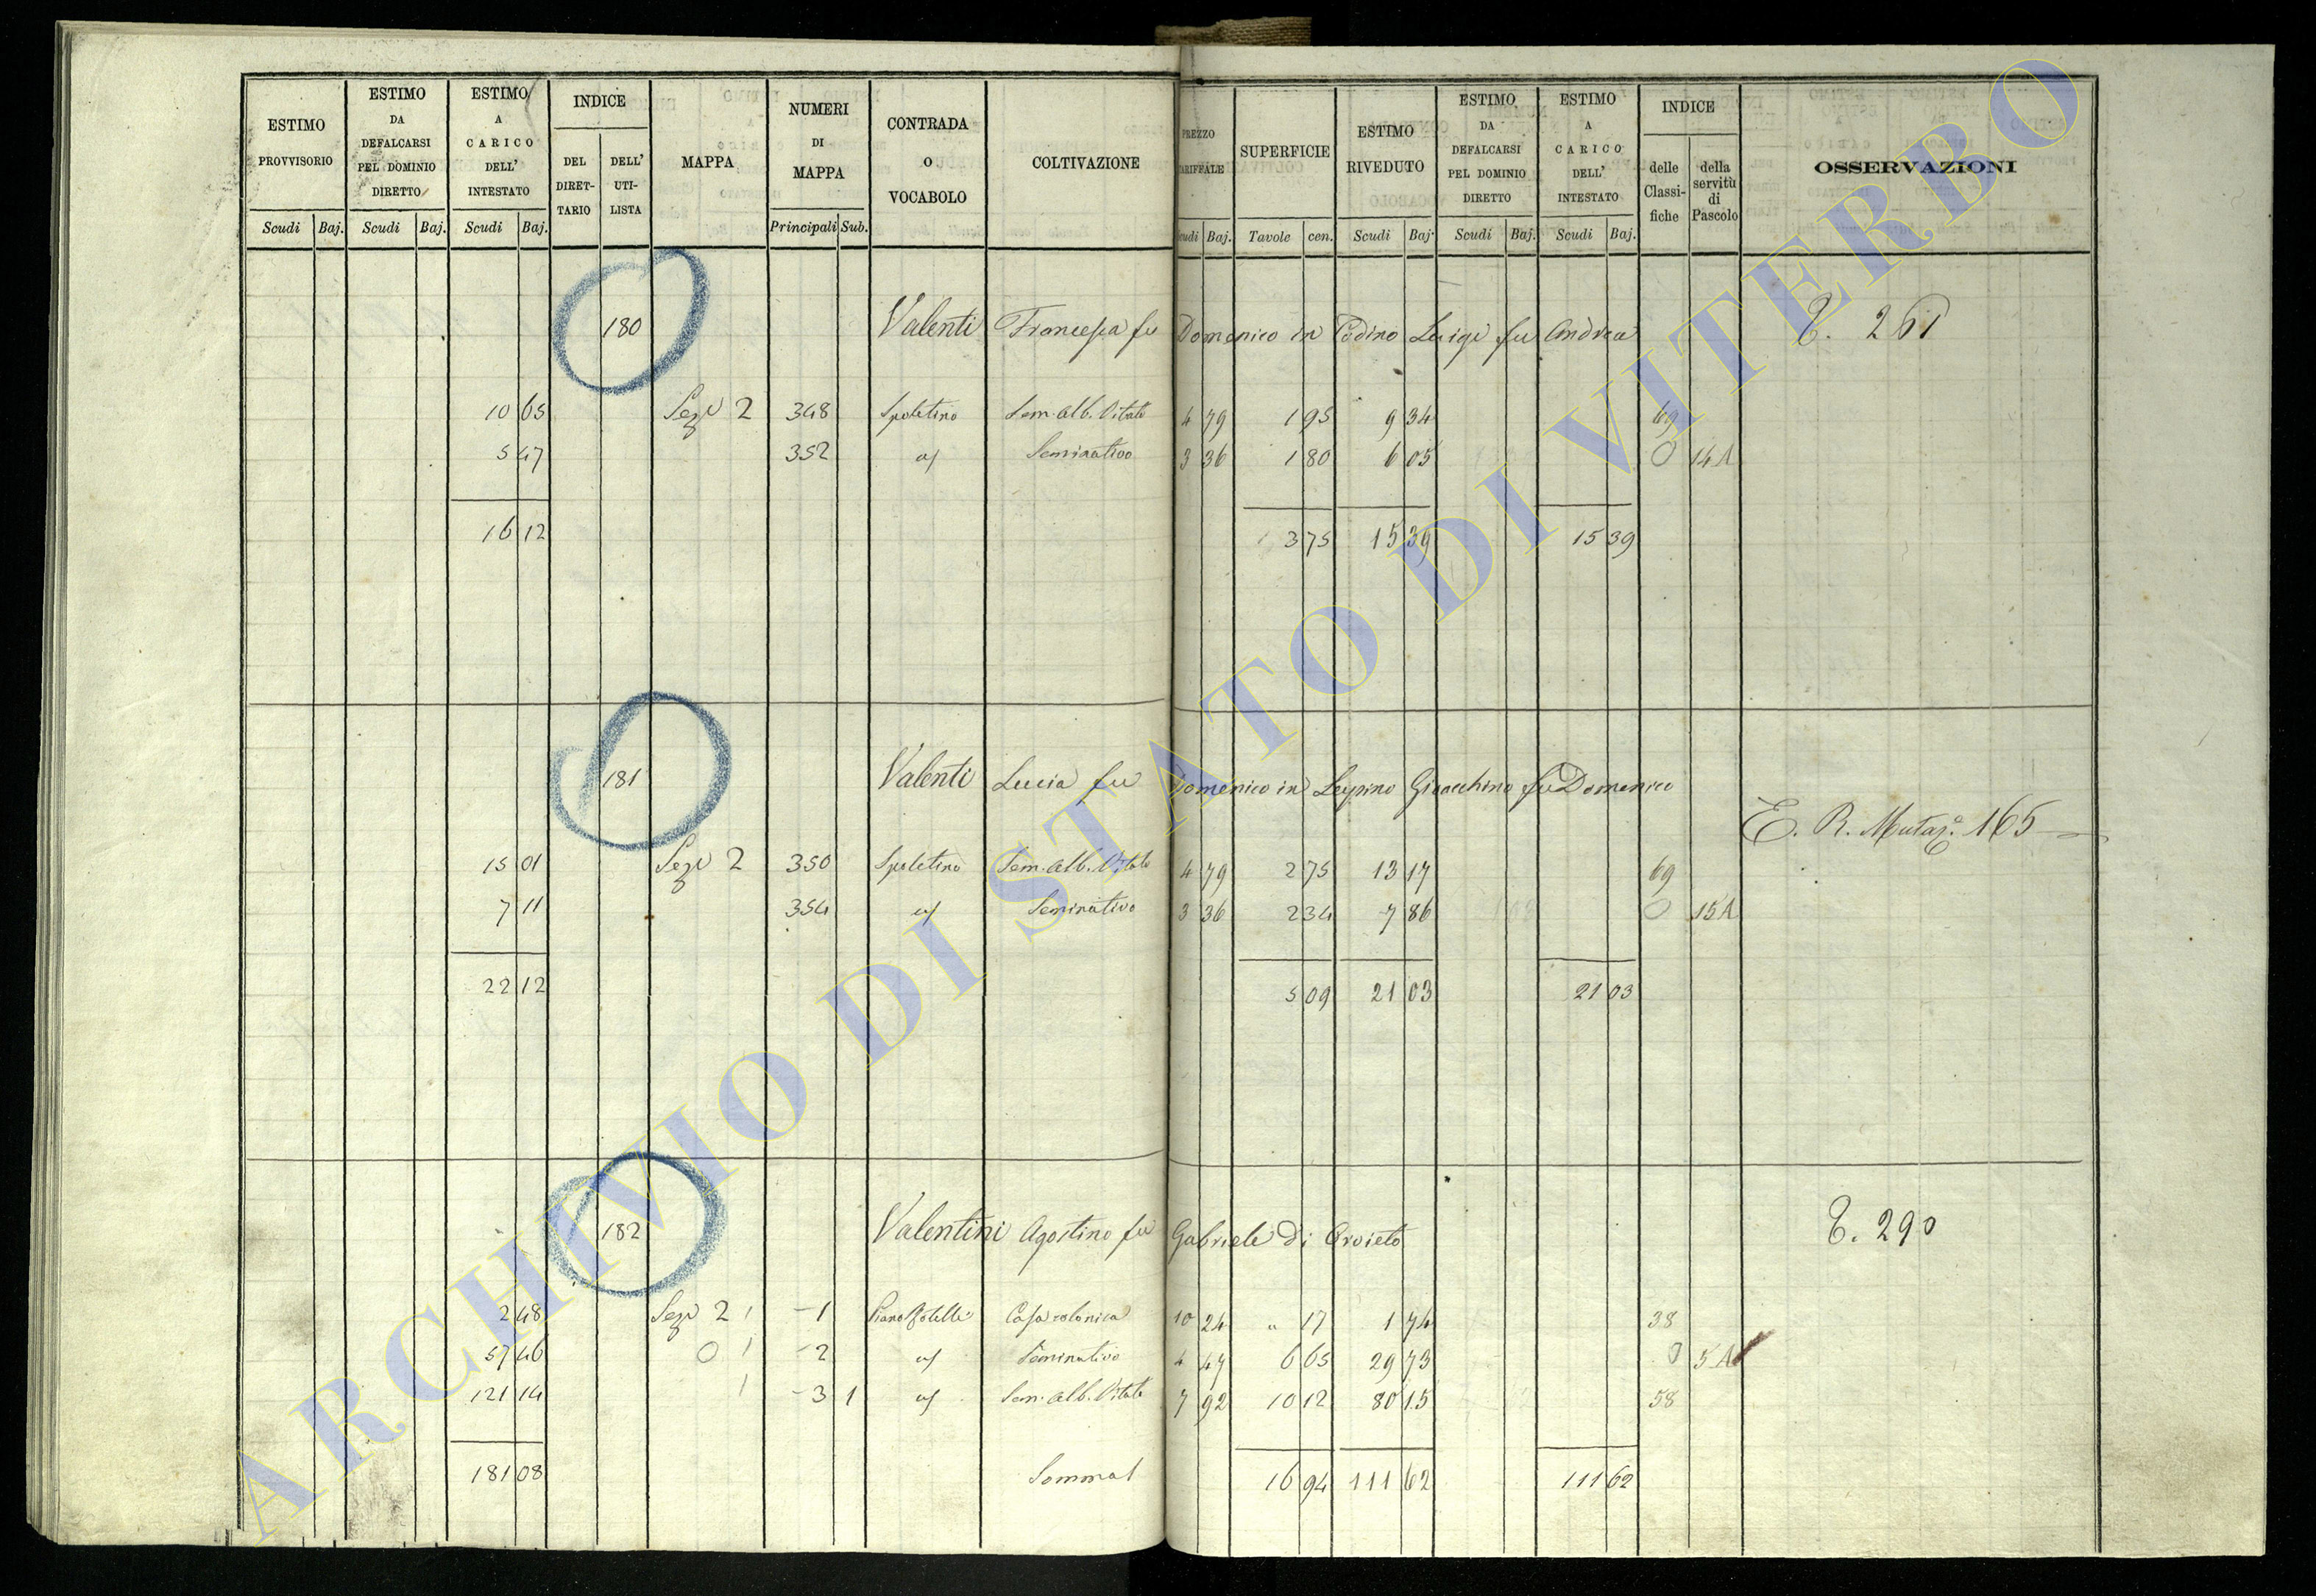 ESTIMO PROVVISORIO | ESTIMO DA DEFALCARSI PEL DOMINIO DIRETTO | ESTIMO A CARICO DELL' INTESTATO | INDICE DEL DIRET-TARIO | DELL' UTI-LISTA | MAPPA | NUMERI DI MAPPA | CONTRADA O VOCABOLO | COLTIVAZIONE | PREZZO TARIFFALE | SUPERFICIE | ESTIMO RIVEDUTO | ESTIMO DA DEFALCARSI PEL DOMINIO DIRETTO | ESTIMO A CARICO DELL' INTESTATO | INDICE delle Classi-fiche | della servitù di Pascolo | OSSERVAZIONI
Scudi Baj. Scudi Baj. Scudi Baj. Principali Sub. Scudi Baj. Tavole cen. Scudi Baj. Scudi Baj. Scudi Baj.
180 Valenti Francesca fu Domenico in Luigi fu Andrea 261
10 65 Seze 2 348 Spoletino Sem. alb. Vitato 4 79 1 95 9 34 69
5 47 352 Seminativo 3 36 1 80 6 05 0 14A
16 12 3 75 15 39 15 39
181 Valenti Lucia fu Domenico in Gioacchino fu Domenico
E. R. Mutaz. 165
15 01 Seze 2 350 Spoletino Sem. alb. Vitato 4 79 2 75 13 17 69
7 11 354 Seminativo 3 36 2 34 7 86 0 15A
22 12 5 09 21 03 21 03
182 Valentini Agostino fu Gabriele di Orvieto 290
2 48 Seze 2 1 Casa colonica 10 24 " 17 1 74 38
57 46 0 2 Seminativo 4 47 6 65 29 73 0 5A
121 14 3 1 Sem. alb. Vitato 7 92 10 12 80 15 58
181 08 16 94 111 62 111 62
ARCHIVIO DI STATO DI VITERBO